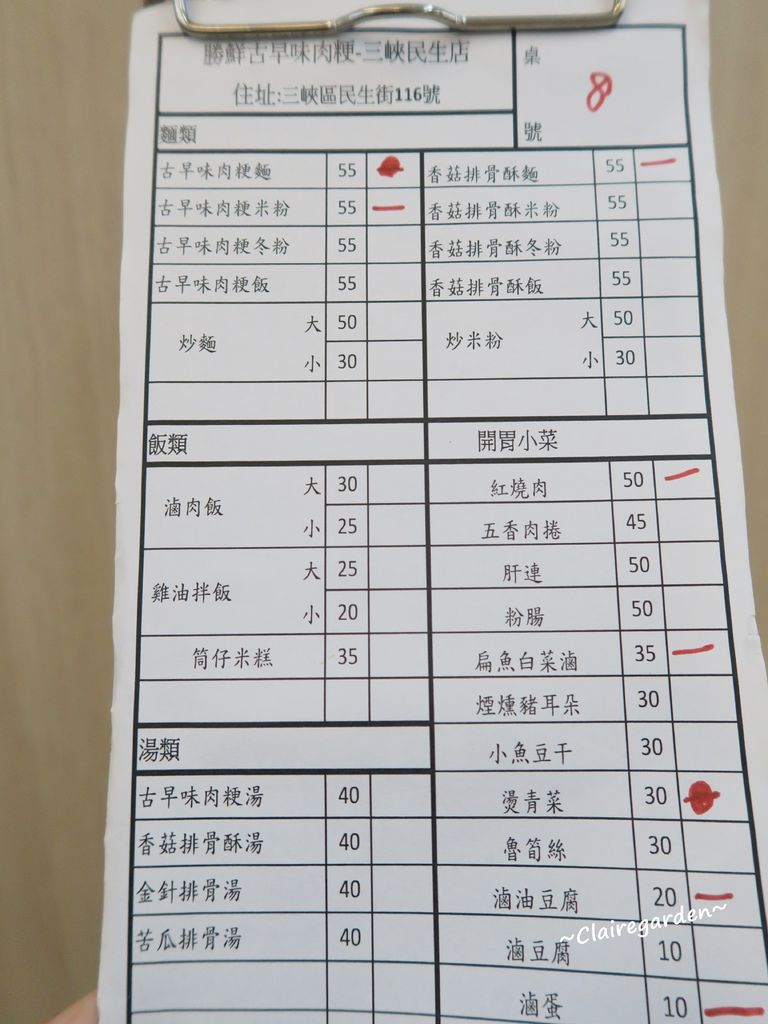 勝鮮古早味肉粳-三峽民生店
住址:三峽區民生街116號
桌
號
8
麵類
古早味肉粳麵 55 香菇排骨酥麵 55
古早味肉粳米粉 55 香菇排骨酥米粉 55
古早味肉粳冬粉 55 香菇排骨酥冬粉 55
古早味肉粳飯 55 香菇排骨酥飯 55
炒麵 大 50 炒米粉 大 50
小 30 小 30
飯類 開胃小菜
滷肉飯 大 30 紅燒肉 50
小 25 五香肉捲 45
雞油拌飯 大 25 肝連 50
小 20 粉腸 50
筒仔米糕 35 扁魚白菜滷 35
煙燻豬耳朵 30
湯類 小魚豆干 30
古早味肉粳湯 40 燙青菜 30
香菇排骨酥湯 40 魯筍絲 30
金針排骨湯 40 滷油豆腐 20
苦瓜排骨湯 40 滷豆腐 10
滷蛋 10
~Clairegarden~